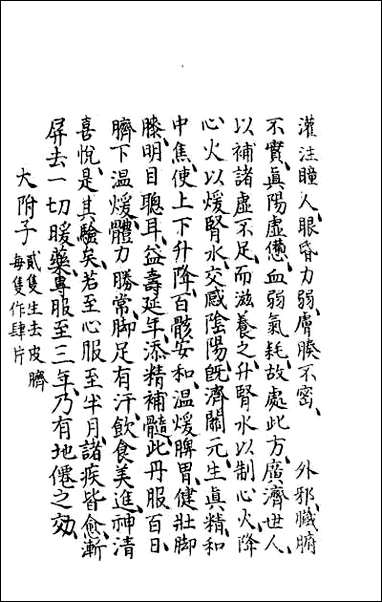 灌注瞳人眼昏力弱膚腠不密　外邪臟腑
不實眞陽虛憊血弱氣耗故處此方廣濟世人
以補諸虛不足而滋養之升腎水以制心火降
心火以煖腎水交感陰陽旣濟關元生眞精和
中焦使上下升降百骸安和温煖脾胃健壯脚
膝明目聰耳益壽延年添精補髓此丹服百日
臍下温煖體力勝常脚足有汗飲食美進神清
喜悅是其驗矣若至心服至半月諸疾皆愈漸
屏去一切暖藥專服至三年乃有地僊之効
大附子貳隻生去皮臍
每隻作肆片